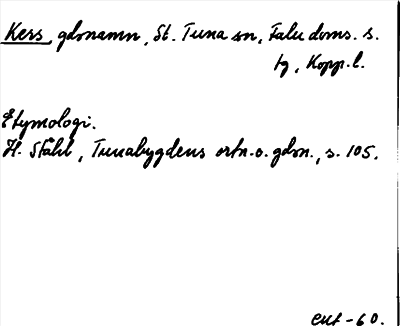 Kers, gdsnamn, St. Tuna sn, Falu doms. s.
tg, Kopp. l.
Etymologi.
H. Ståhl, Tunabygdens ortn. o. gdsn., s. 105.
-60.